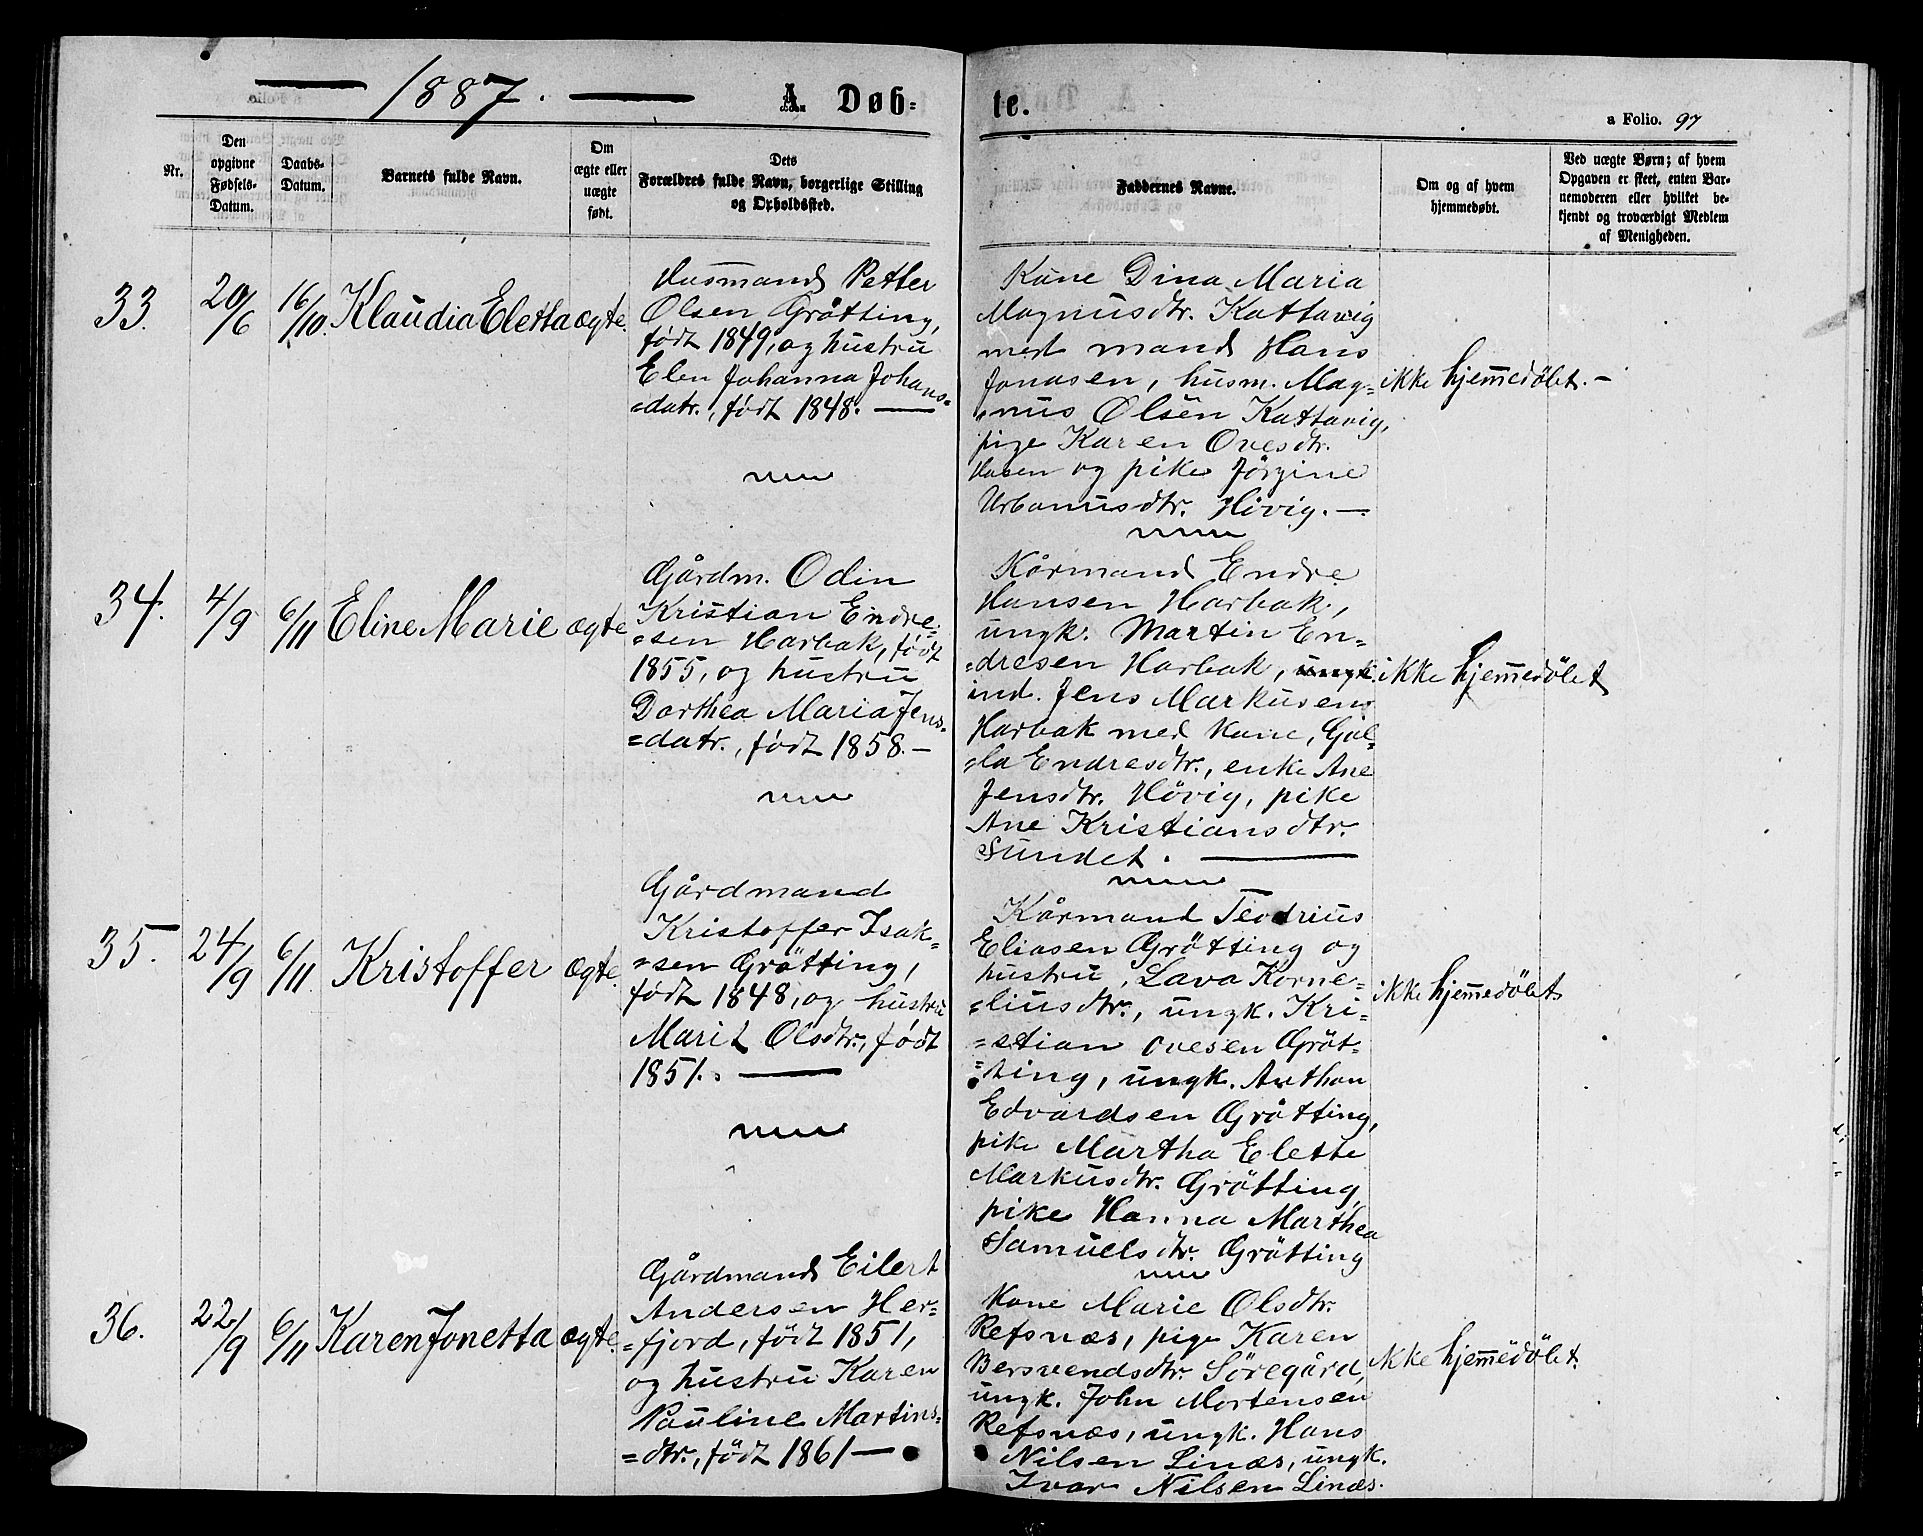 1887.
A. Døb-
te.
a Folio. 97
Nr.
Den opgivne Fødsels-Datum.
Daabs-Datum.
Barnets fulde Navn.
Om ægte eller uægte født.
Dets Forældres fulde Navn, borgerlige Stilling og Opholdssted.
Faddernes Navne.
Om og af hvem hjemmedøbt.
Ved uægte Børn; af hvem Opgaven er skeet, enten Barnemoderen eller hvilket bekjendt og troværdigt Medlem af Menigheden.
33.
20/6
16/10.
Klaudia Eletta
ægte.
Husmand Petter
Olsen Gråtting,
født 1849, og hustru
Elen Johanna Johans-
=datr., født 1848. —
Kone Dina Maria
Magnusdtr. Kattavig
med mand Hans
Jonasen, husm. Mag-
=nus Olsen Kattavig,
pige Karen Ovesdtr.
og pike Jörgine
Urbanusdtr. Hövig. —
ikke hjemmedöbt. —
34.
4/9
6/11
Eline Marie
ægte
Gårdm. Odin
Kristian Endre-
=sen Harbak, født
1855, og hustru
Dorthea Maria Jens-
=datr., født 1858. —
Kårmand Endre
Hansen Harbak,
ungk. Martin En-
=dresen Harbak, ungk.
ind. Jens Markusen
Harbak med kone, Gul-
=la Endresdtr., enke Ane
Jensdtr. Hövig, pike
Ane Kristiansdtr.
Sundet. —
ikke hjemmedöbt
35.
24/9
6/11.
Kristoffer
ægte.
Gårdmand
Kristoffer Isak-
=sen Gråtting,
født 1848, og hustru
Marit Olsdtr., født
1851. —
Kårmand Teodrius
Eliasen Gråtting og
hustru, Lava Korne-
=liusdtr., ungk. Kri-
=stian Ovesen Gråt-
=ting, ungk. Anthon
Edvardsen Gråtting,
pike Martha Elette
Markusdtr. Gråtting,
pike Hanna Marthea
Samuelsdtr. Gråtting
ikke hjemmedöbt
36.
22/9
6/11
Karen Jonetta
ægte.
Gårdmand Eilert
Andersen Her-
=fjord, födt 1851,
og hustru Karen
Pauline Martins-
=dtr., födt 1861 —
Kone Marie Olsdtr.
Refsnæs, pige Karen
Bersvendsdtr. Söregård,
ungk. John Mortensen
Refsnæs, ungk. Hans
Nilsen Linæs, ungk.
Ivar Nilsen Linæs.
ikke hjemmedöbt.